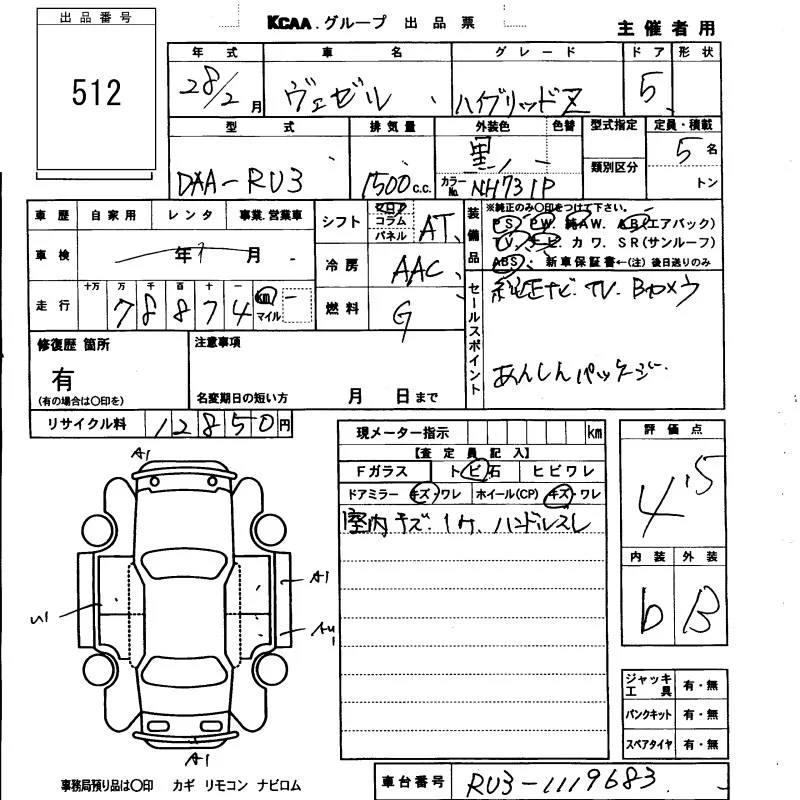 出品番号
512
KCAA.グループ 出品票
主催者用
年式 車名 グレード ドア 形状
28/2月 ヴェゼル ハイブリッドZ 5
型式 排気量 外装色 色替 型式指定 定員・積載
DAA-RU3 1500c.c. 黒 カラーNo. NH731P 類別区分 5名
トン
車歴 自家用 レンタ 事業.営業車
車検 年 月
走行 十万 万 千 百 十 一
78874 km マイル
シフト フロア コラム パネル AT
冷房 AAC
燃料 G
装備品 ※純正のみ〇印をつけて下さい。
PS PW. 純AW. AB(エアバック)
TV ナビ カワ. SR(サンルーフ)
ABS 新車保証書←(注)後日送りのみ
セールスポイント
純正ナビ. TV. Bカメラ
あんしんパッケージ
修復歴 箇所
有
(有の場合は〇印を)
注意事項
名変期日の短い方 月 日まで
リサイクル料 12850円
現メーター指示 km
【査定員記入】
Fガラス トビ石 ヒビワレ
ドアミラー キズ・ワレ ホイール(CP) キズ・ワレ
室内キズ. 1ケ. ハンドルスレ
評価点
4.5
内装 外装
b B
A1
A1
U1
A1
ジャッキ工具 有・無
パンクキット 有・無
スペアタイヤ 有・無
事務局預り品は〇印 カギ リモコン ナビロム
車台番号 RU3-1119683